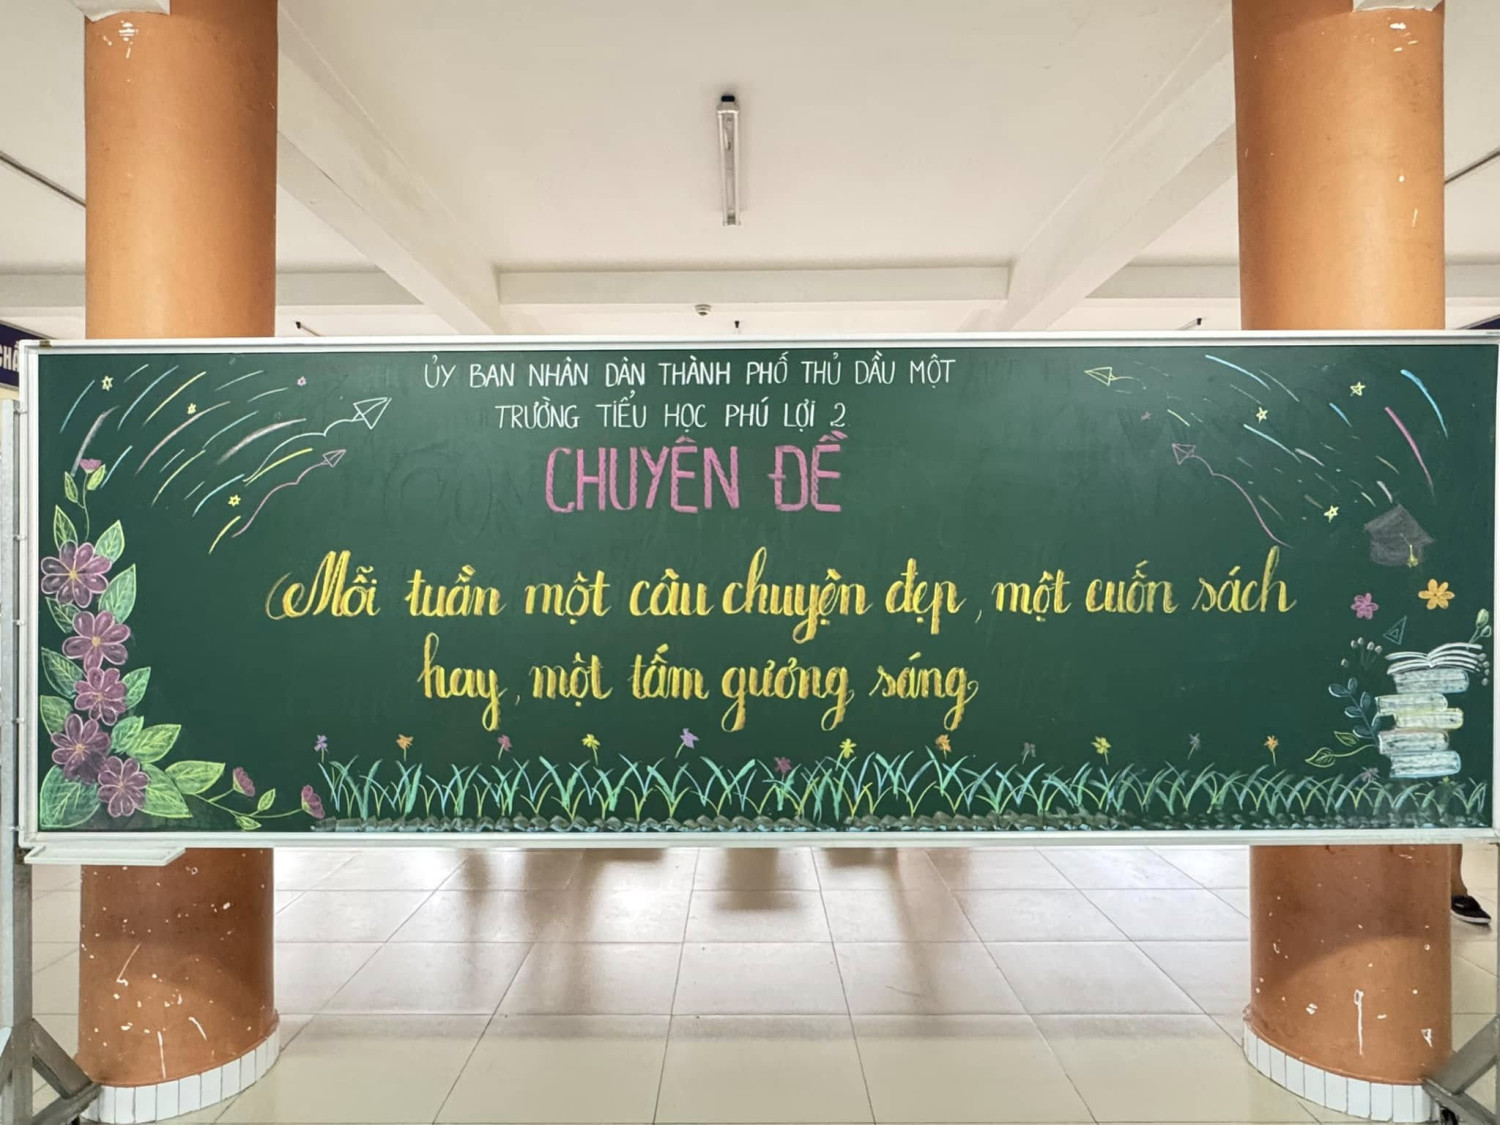 ỦY BAN NHÂN DÂN THÀNH PHỐ THỦ DẦU MỘT
TRƯỜNG TIỂU HỌC PHÚ LỢI 2
CHUYÊN ĐỀ
Mỗi tuần một câu chuyện đẹp, một cuốn sách
hay, một tấm gương sáng